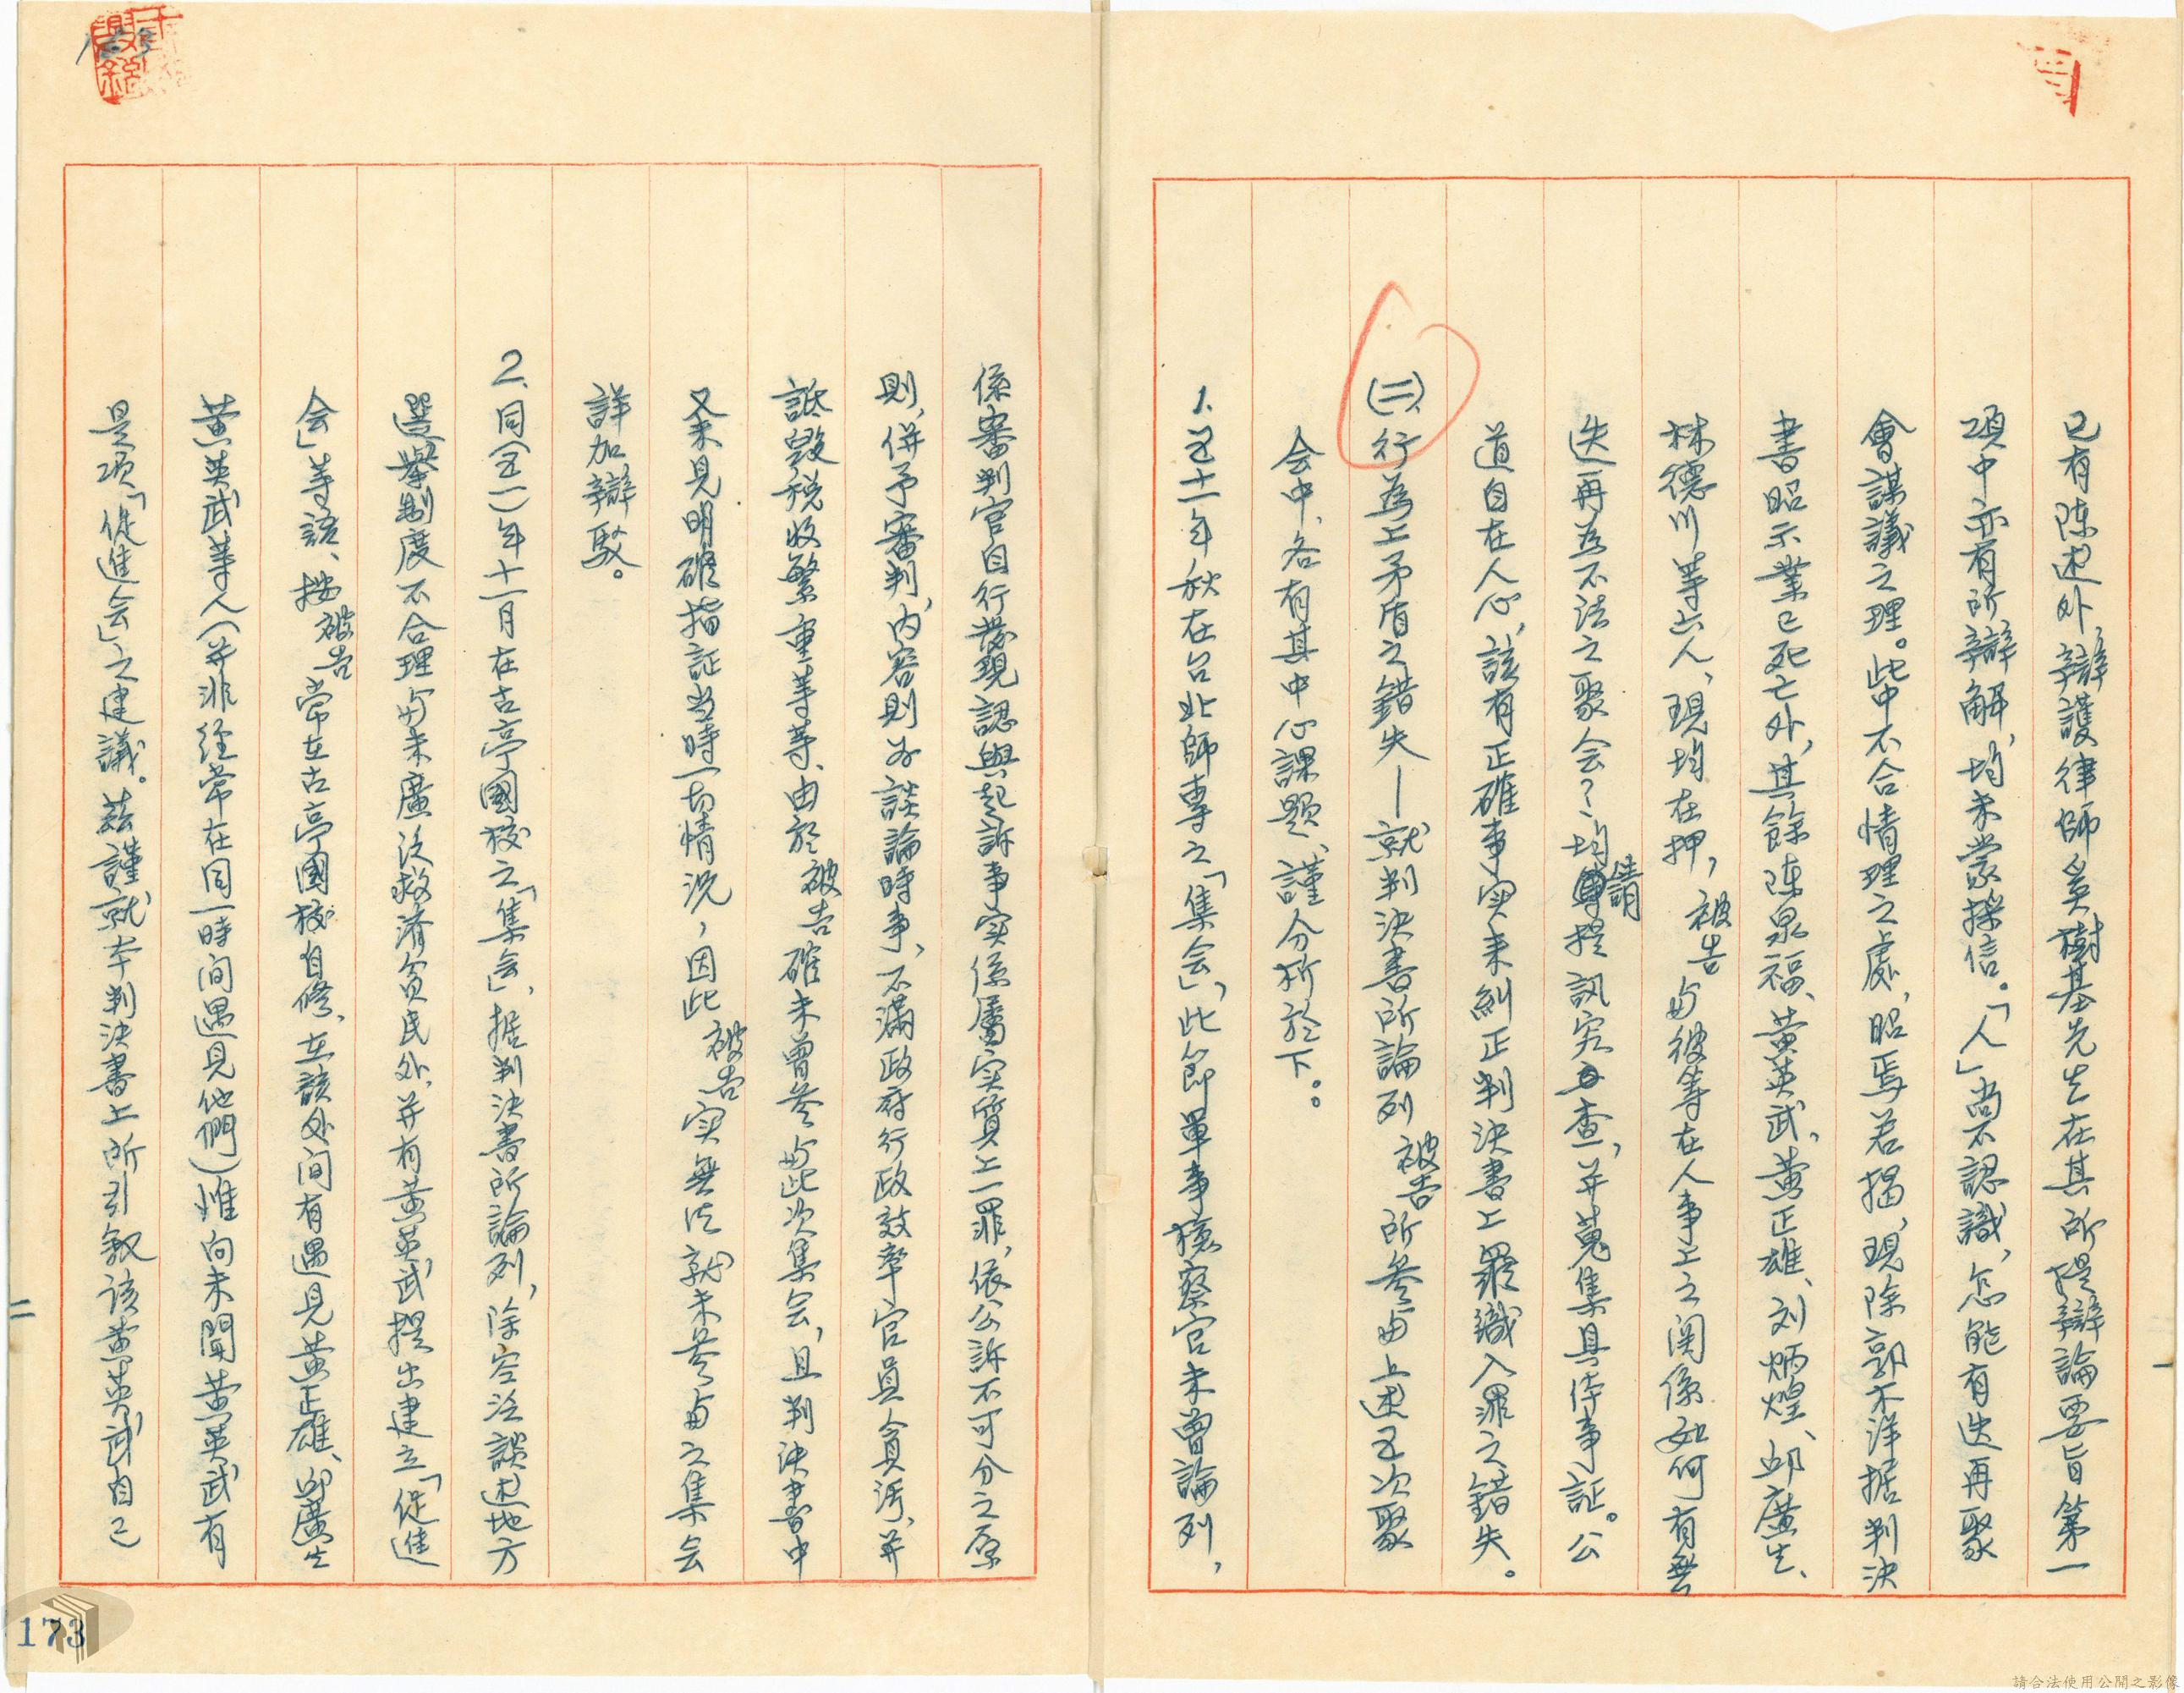 已有陈述外,辯護律師奚樹基先生在其所提辯論要旨第一
項中亦有所辯解,均未蒙採信。「人」尚不認識,怎能有迭再聚
會謀議之理。此中不合情理之處,昭焉若揭,現除郭木洋据判決
書昭示業已死亡外,其餘陈泉福、黄英武、黄正雄、刘炳煌、邱廣生、
林德川等六人,現均在押,被告与彼等在人事上之関係如何有無
迭再為不法之聚会?、均請提訊究查,并蒐集具体事証。公
道自在人心,該有正確事实来糾正判決書上羅織入罪之錯失。
(二)、行為上矛盾之錯失—就判決書所論列被告所参与上述五次聚
会中、各有其中心課題、謹分析於下。。
1. 五十一年秋在台北師專之「集会」,此節軍事檢察官未曾論列,
係審判官自行發現認與起訴事实係屬实質上一罪,依公訴不可分之原
則,併予審判,内容則为談論時事,不滿政府行政效率官員貪污,并
詆毀税收繁重等等、由於被告確未曾参与此次集会,且判決書中
又未見明確指証当時一切情況,因此被告实無法就未参与之集会
詳加辯駁。
2. 同(五一)年十一月在古亭國校之「集会」,据判決書所論列,除空泛談述地方
選舉制度不合理与未廣泛救済貧民外,并有黄英武提出建立「促進
会」等語、按被告常在古亭國校自修、在該处间有遇見黄正雄、邱廣生
黄英武等人(并非经常在同一時间遇見他們)惟向未聞黄英武有
是項「促進会」之建議。茲謹就本判決書上所引敘该黄英武自己
二
173
請合法使用公開之影像